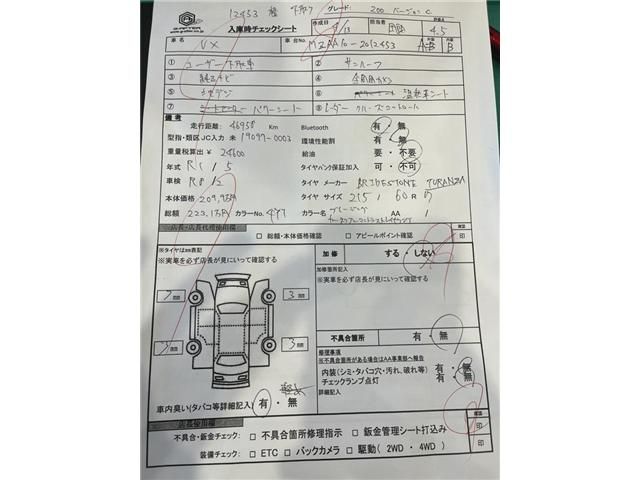 12453
グレード: 200 バージョン C
G-AFTER
入庫時チェックシート
作成日 4/13 担当者 評価点 4.5
車名 UX 車台No. MZAA10-2012453 外装 内装 B
① ユーザー下取車 ② サンルーフ
③ 純正ナビ ④ 全周囲カメラ
⑤ 地デジ ⑥ 温熱シート
⑦ パワーシート ⑧ レーダークルーズコントロール
備考
走行距離: 46958 Km Bluetooth 有・無
型指・類区JC入力 未 19097-0003 環境性能割 有・無
重量税算出 ¥ 24600 給油 要・不要
年式 R1/5 タイヤパンク保証加入 可・不可
車検 R8/2 タイヤ メーカー BRIDGESTONE TURANZA
本体価格 209.9万円 タイヤ サイズ 215/60R17
総額 223.1万円 カラーNo. 4Y1 カラー名 AA /
店長・店長代理使用欄 確認
□ 総額・本体価格確認 □ アピールポイント確認 印
※タイヤは㎜表記
※実車を必ず店長が見にいって確認する
加修 する・しない
加修箇所記入
※実車を必ず店長が見にいって確認する
7 mm 3 mm
3 mm
不具合箇所 有・無
修理事項
※不具合箇所がある場合はAA事業部へ報告
内装(シミ・タバコ穴・汚れ、破れ等) 有・無
チェックランプ点灯 有・無
詳細記入
車内臭い(タバコ等詳細記入) 有・無
店長使用欄 確認
不具合・鈑金チェック: □ 不具合箇所修理指示 □ 鈑金管理シート打込み 印
装備チェック: □ ETC □ バックカメラ □ 駆動(2WD・4WD) 印